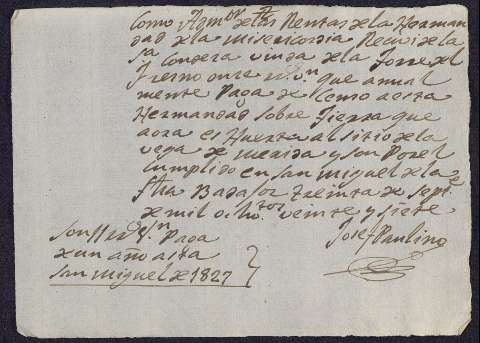 Como Admor. de las Rentas de la Herman
dad de la Misericordia Recivi de la
Sa. Condesa viuda de la Torre del
Fresno once rs. vn. que anual
mente Paga de Censo a esta
Hermandad sobre tierra que
aora es Huerta al sitio de la
vega de merida y son Por el
Cumplido en San Miguel de la
fha Badajoz treinta de Septe.
de mil ochotos. veinte y siete
Josef Paulino
Son 11 rs. vn. Paga
de un año a sta
San Miguel de 1827